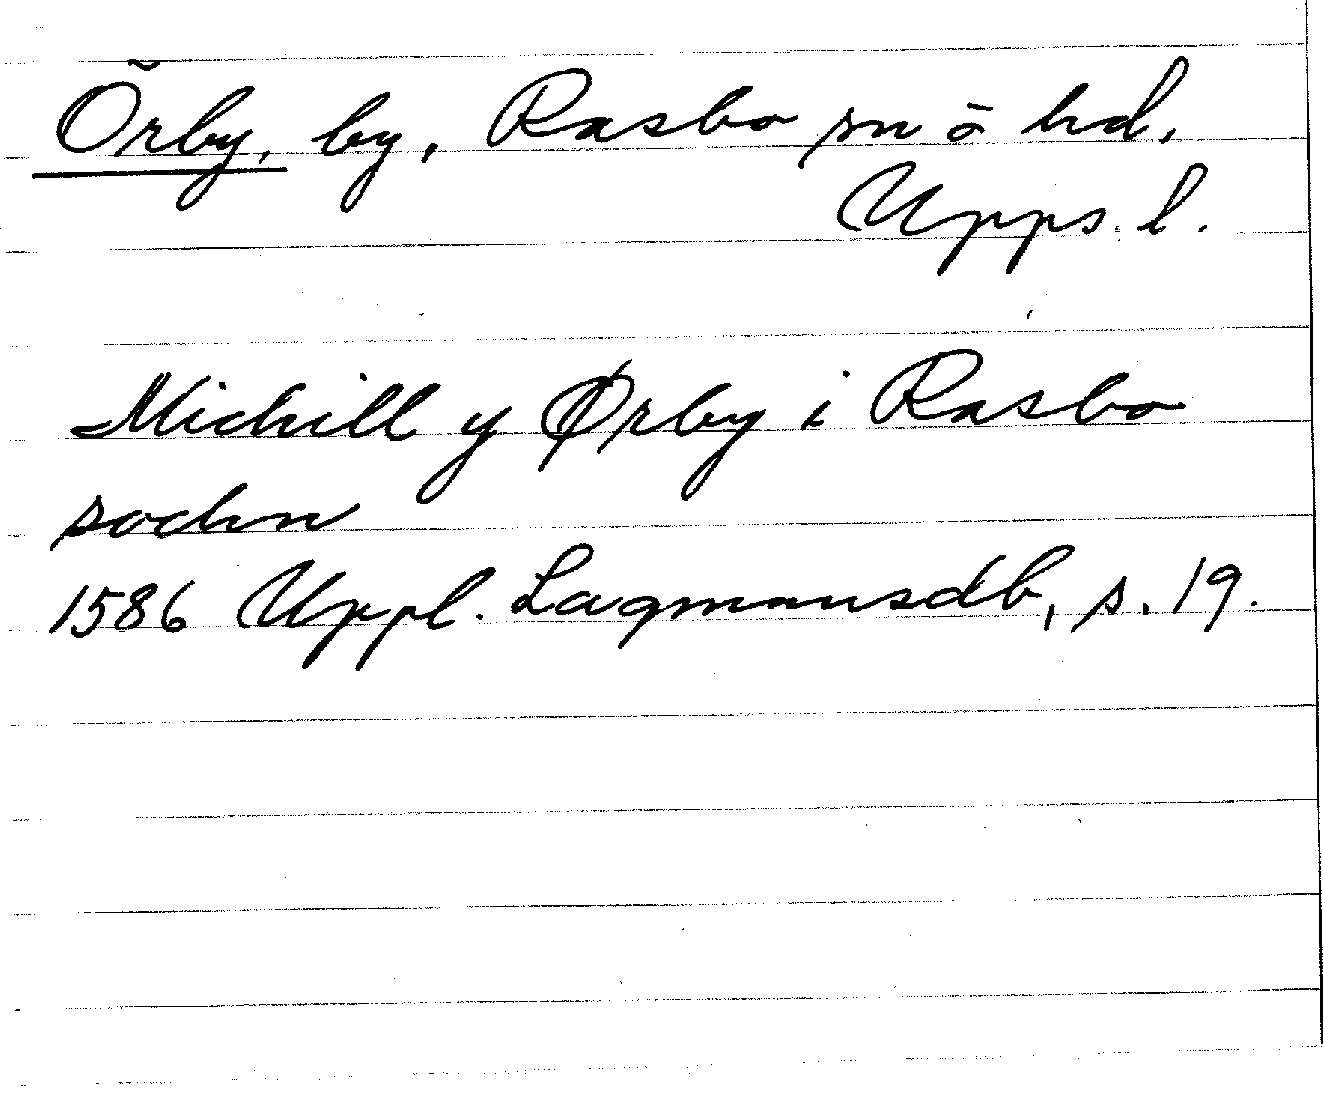 Örby, by, Rasbo sn o hd,
Upps. l.
Michill y Ørby i Rasbo
sochn
1586 Uppl. Lagmansdb, s. 19.